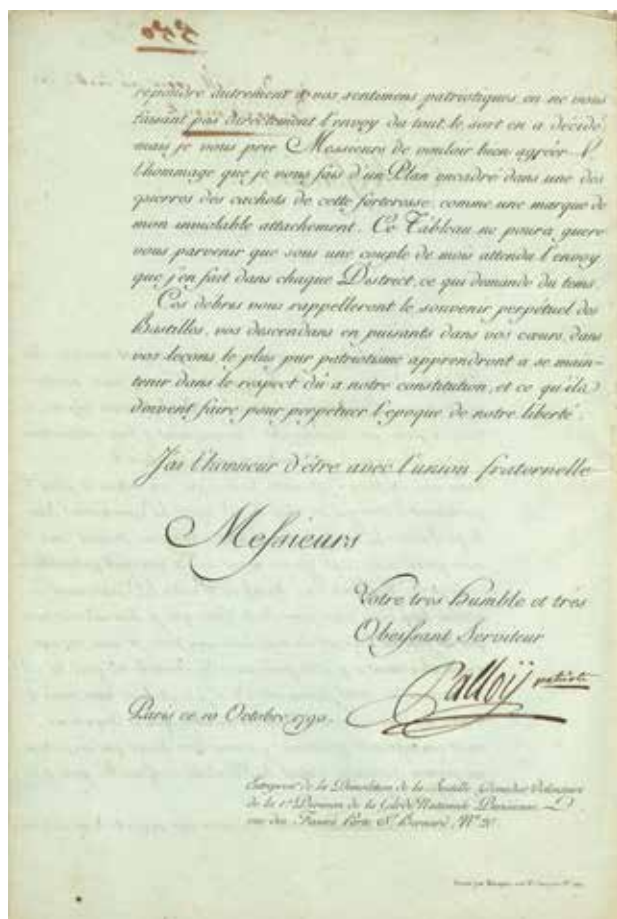 répondre autrement a vos sentimens patriotiques, en ne vous
faisant pas directement l'envoy du tout, le sort en a décidé,
mais je vous prie Messieurs de vouloir bien agréer
l'hommage que je vous fais d'un Plan encadré dans une des
pierres des cachots de cette forteresse, comme une marque de
mon inviolable attachement. Ce Tableau ne poura guere
vous parvenir que sous une couple de mois attendu l'envoy
que j'en fait dans chaque District, ce qui demande du tems.
Ces débris vous rappelleront le souvenir perpétuel des
Bastilles, vos descendans en puisants dans vos cœurs, dans
vos leçons le plus pur patriotisme apprendront a se main-
tenir dans le respect dû a notre constitution, et ce qu'ils
doivent faire pour perpétuer l'époque de notre liberté.
J'ai l'honneur d'être avec l'union fraternelle
Messieurs
Votre très humble et très
Obeissant Serviteur
Palloÿ patriote
Paris ce 10 Octobre 1790.
Entrepreneur de la Démolition de la Bastille, Grenadier Volontaire
de la 1re Division de la Garde Nationale Parisienne
rue des Fossés St Bernard, No 20